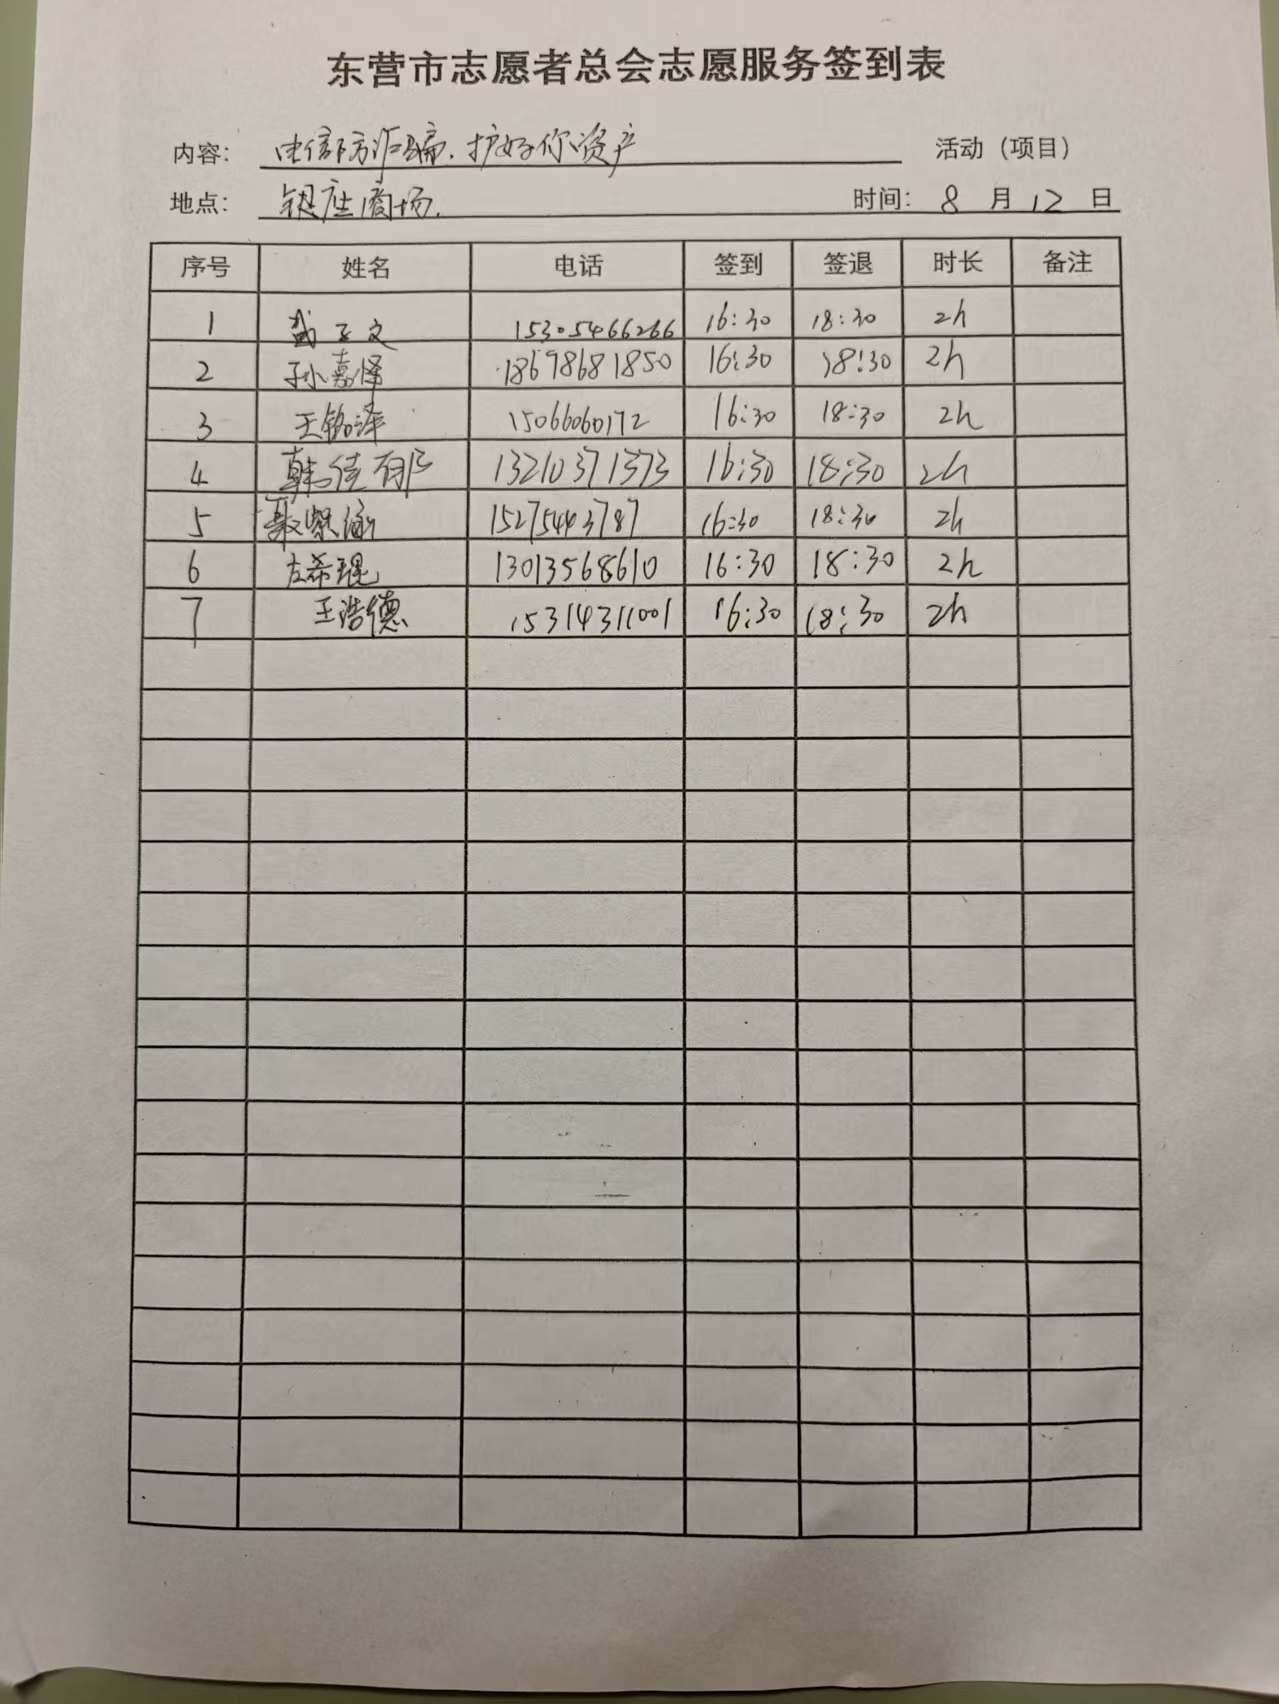 东营市志愿者总会志愿服务签到表
内容： 电信防诈骗.护好你资产 活动（项目）
地点： 银座商场. 时间： 8 月 12 日
序号 姓名 电话 签到 签退 时长 备注
1 文 15305466266 16:30 18:30 2h
2 孙嘉怿 18698681850 16:30 18:30 2h
3 王铭泽 15066060172 16:30 18:30 2h
4 韩佳郡 13210371373 16:30 18:30 2h
5 聂紫涵 15275443787 16:30 18:30 2h
6 左希琨 13013568610 16:30 18:30 2h
7 王浩德 15314311001 16:30 18:30 2h